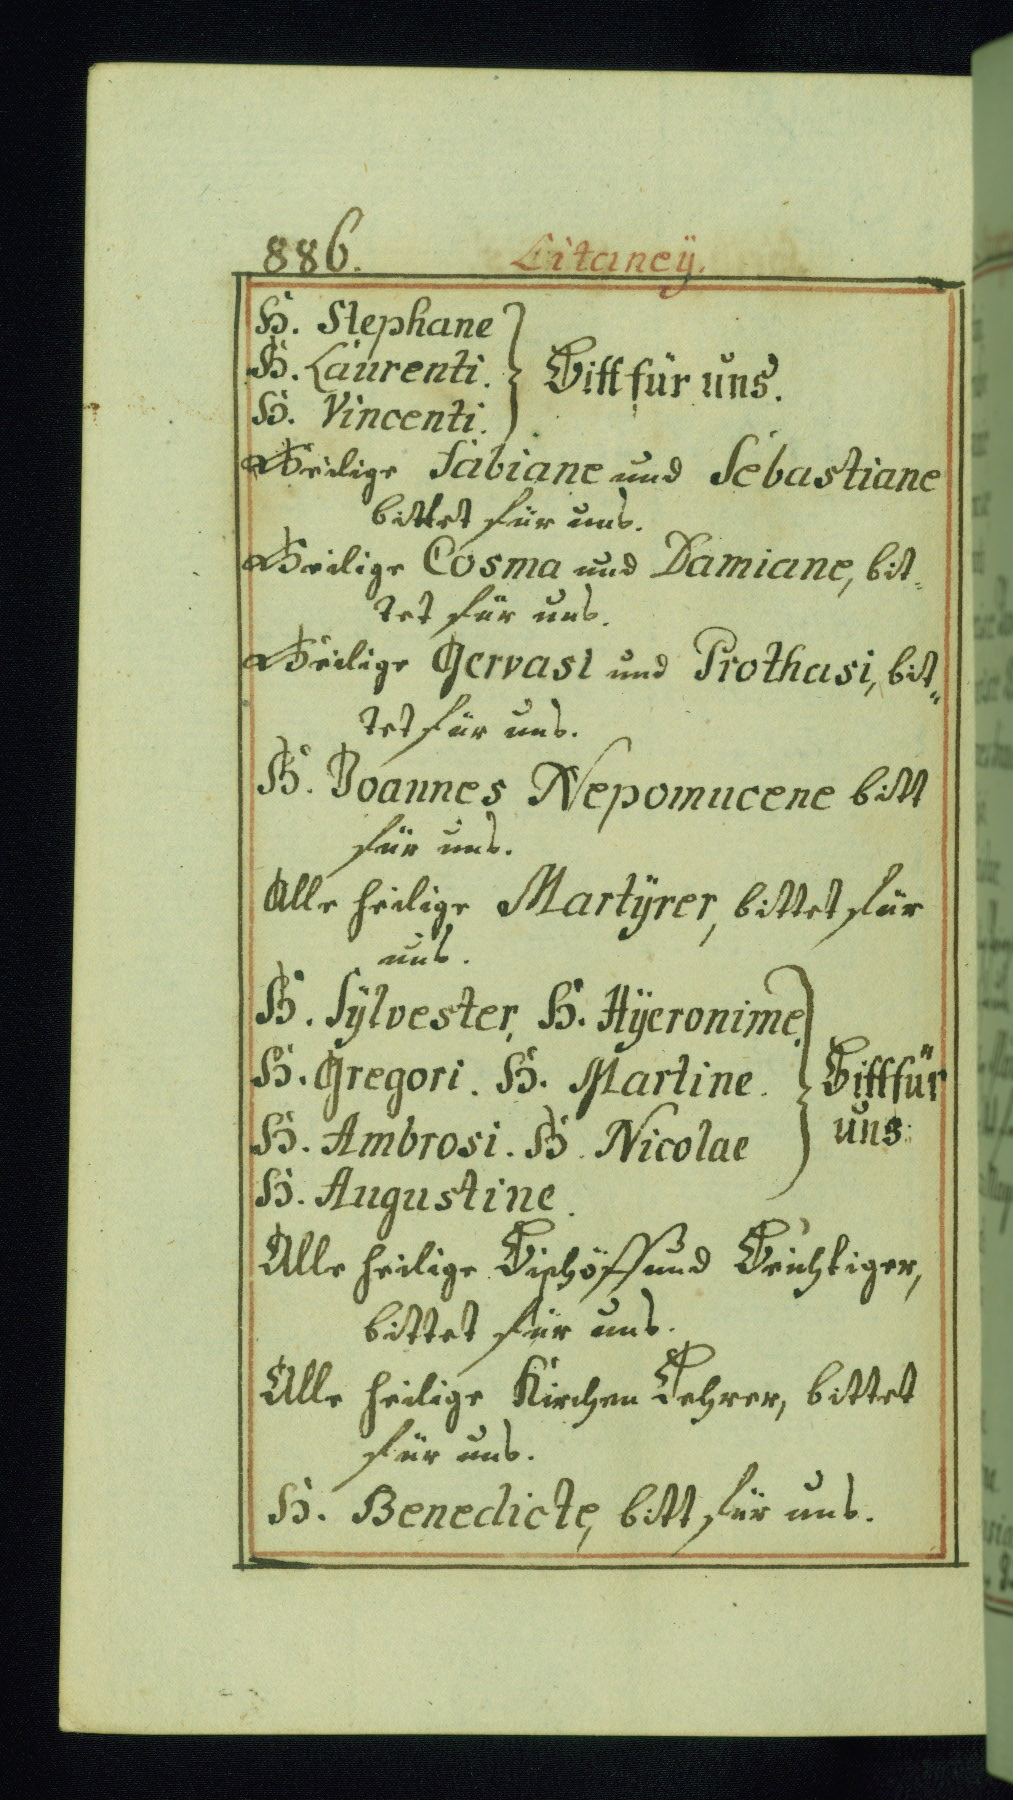 886. Litaneÿ.
H. Stephane
H. Laurenti. Bitt für uns.
H. Vincenti.
Heilige Fabiane und Sebastiane
bittet für uns.
Heilige Cosma und Damiane, bit-
tet für uns.
Heilige Gervasi und Prothasi, bit„
tet für uns.
H. Joannes Nepomucene bitt
für uns.
Alle heilige Martÿrer, bittet für
uns.
H. Sÿlvester, H. Hÿeronime.
H. Gregori. H. Martine. Bitt für
H. Ambrosi. H. Nicolae uns.
H. Augustine.
Alle heilige Bischöff und Beichtiger,
bittet für uns.
Alle heilige Kirchen Lehrer, bittet
für uns.
H. Benedicte, bitt für uns.